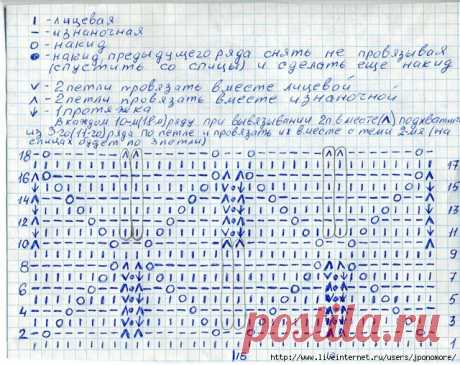 | - лицевая
— - изнаночная
о - накид
● - накид предыдущего ряда снять не провязывая
(спустить со спицы) и сделать еще накид
v - 2 петли провязать вместе лицевой
ʌ - 2 петли провязать вместе изнаночной
↓ 1 протяжка
В каждом 10-м(18м)ряду при вывязывании 2п вместе(ʌ) подхватить
из 3-го(11-го) ряда по петле и провязать их вместе с теми 2-мя (на
спицах будет по 3 петли)
18
17
16
15
14
13
12
11
10
9
8
7
6
5
4
3
2
1
postila.ru
http://www.liveinternet.ru/users/jponomore/